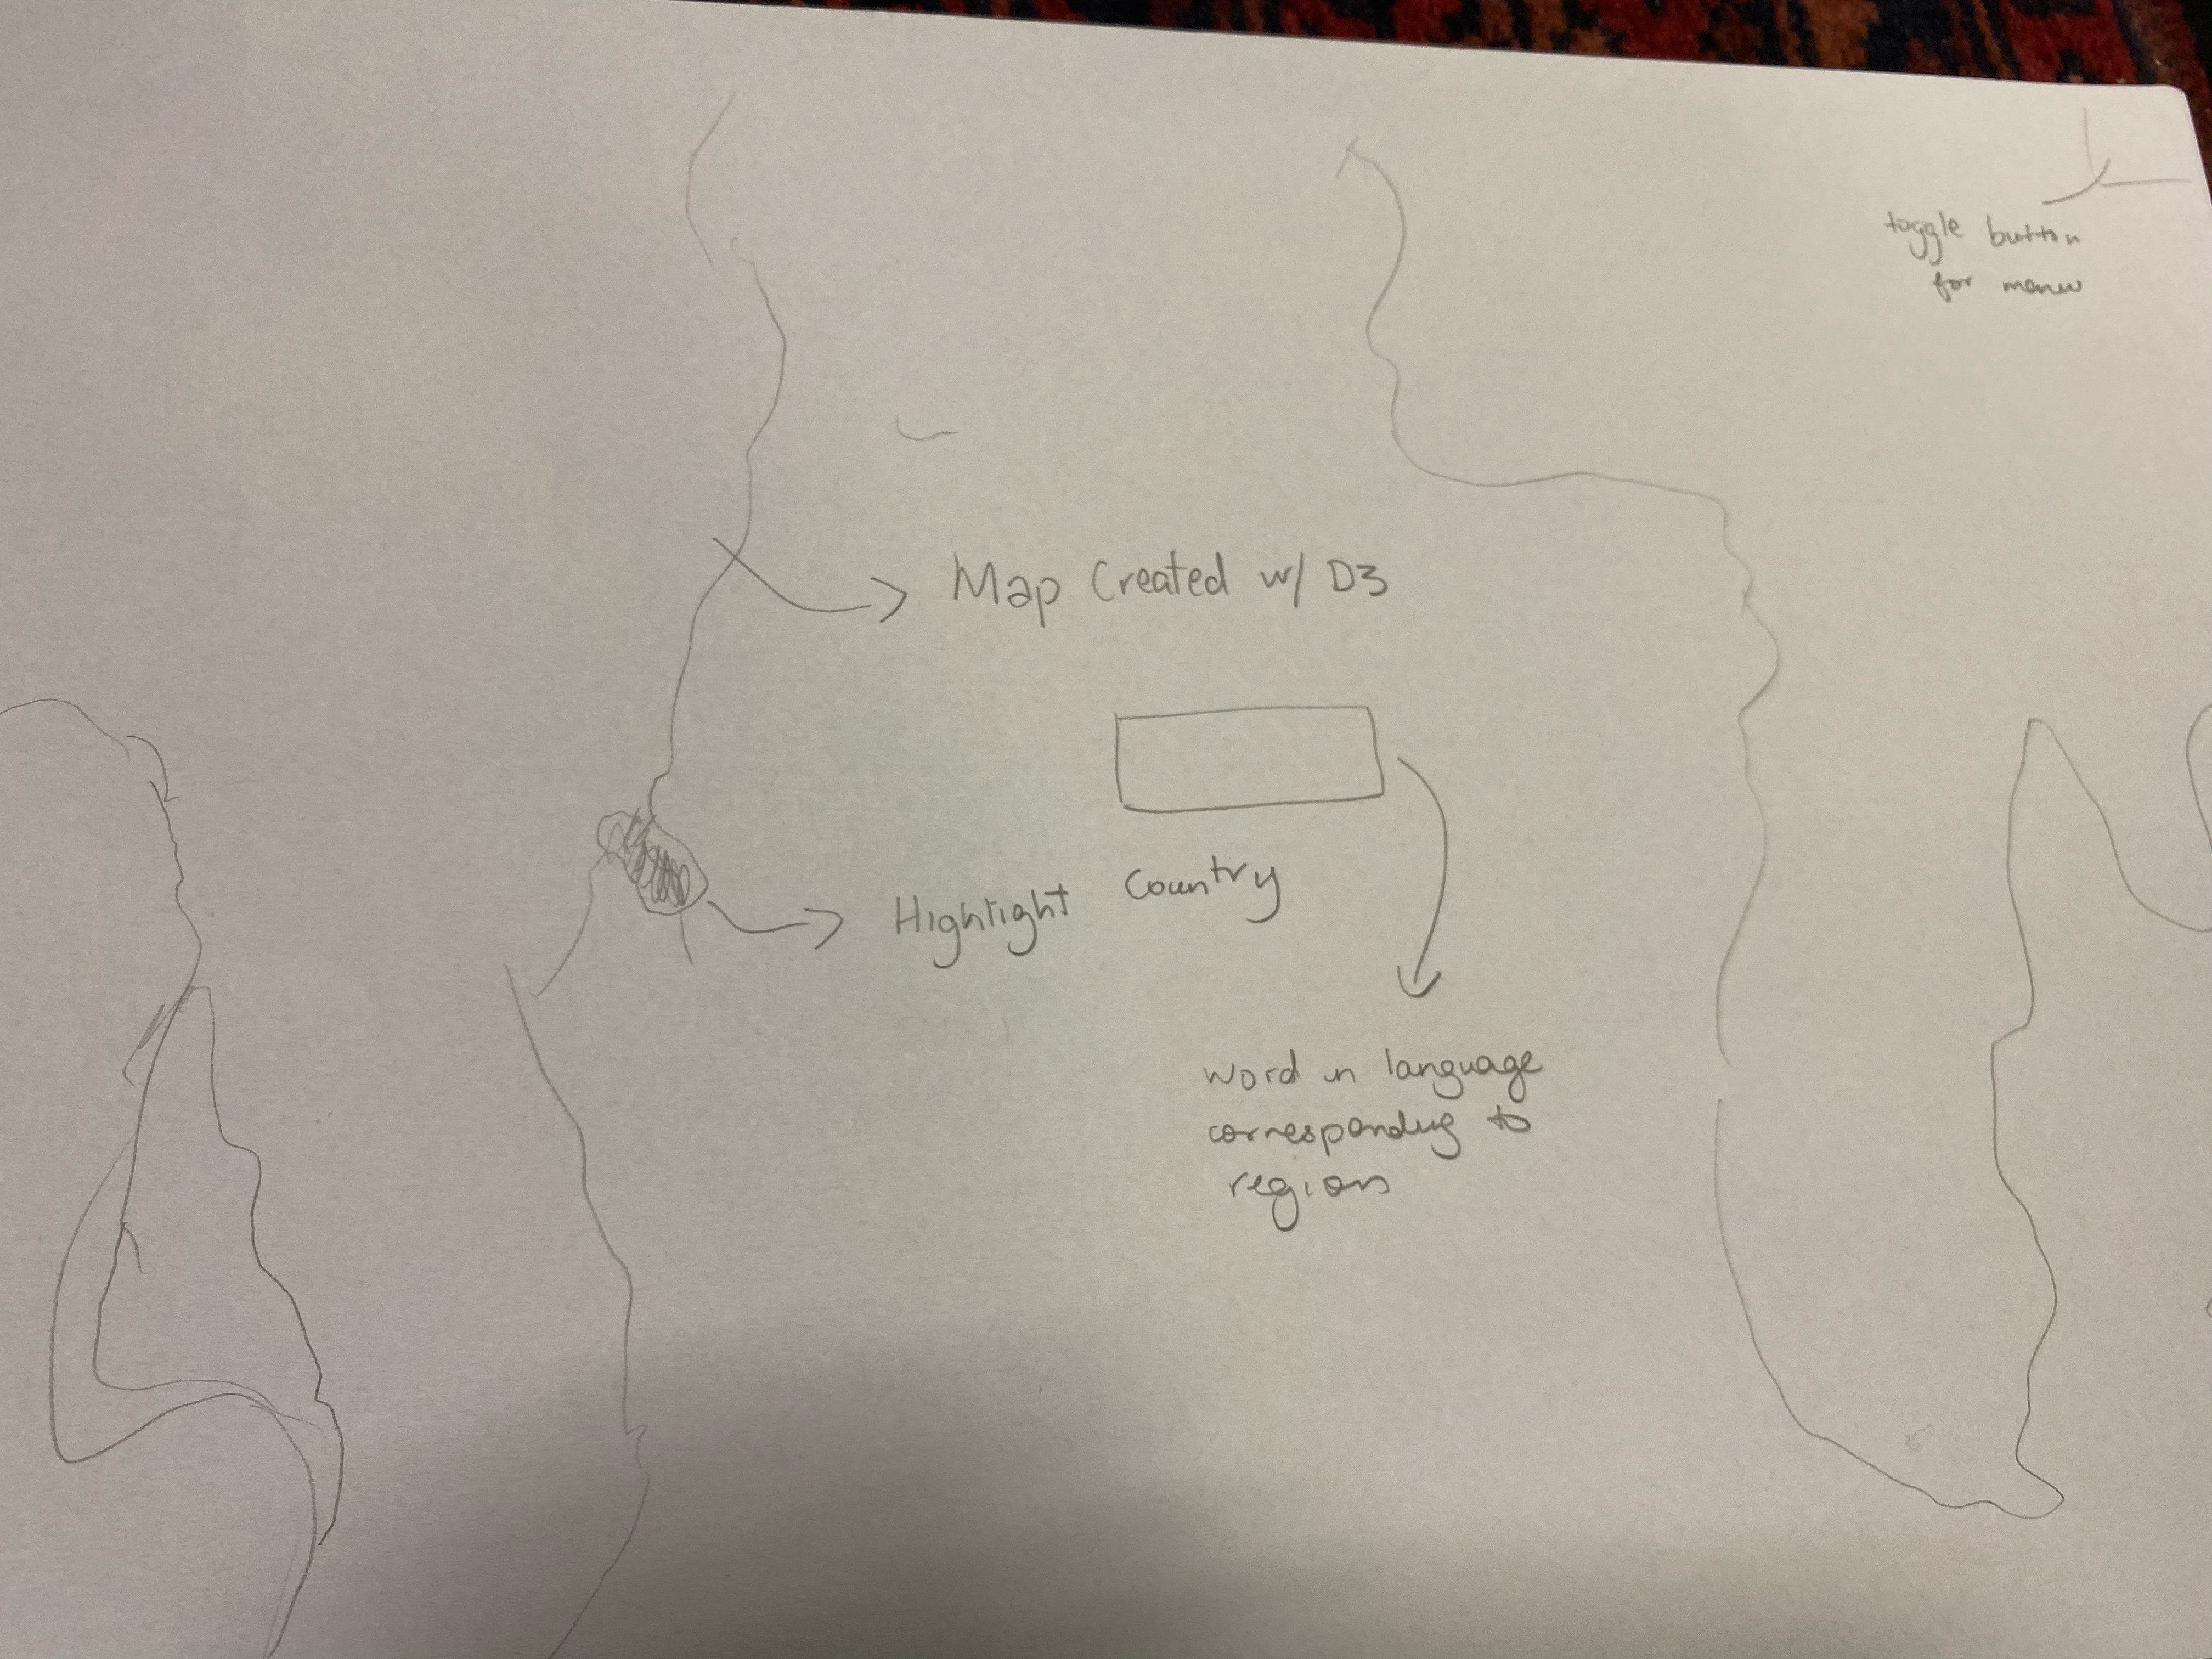 toggle button
for menu
Map Created w/ D3
Highlight Country
word in language
corresponding to
region